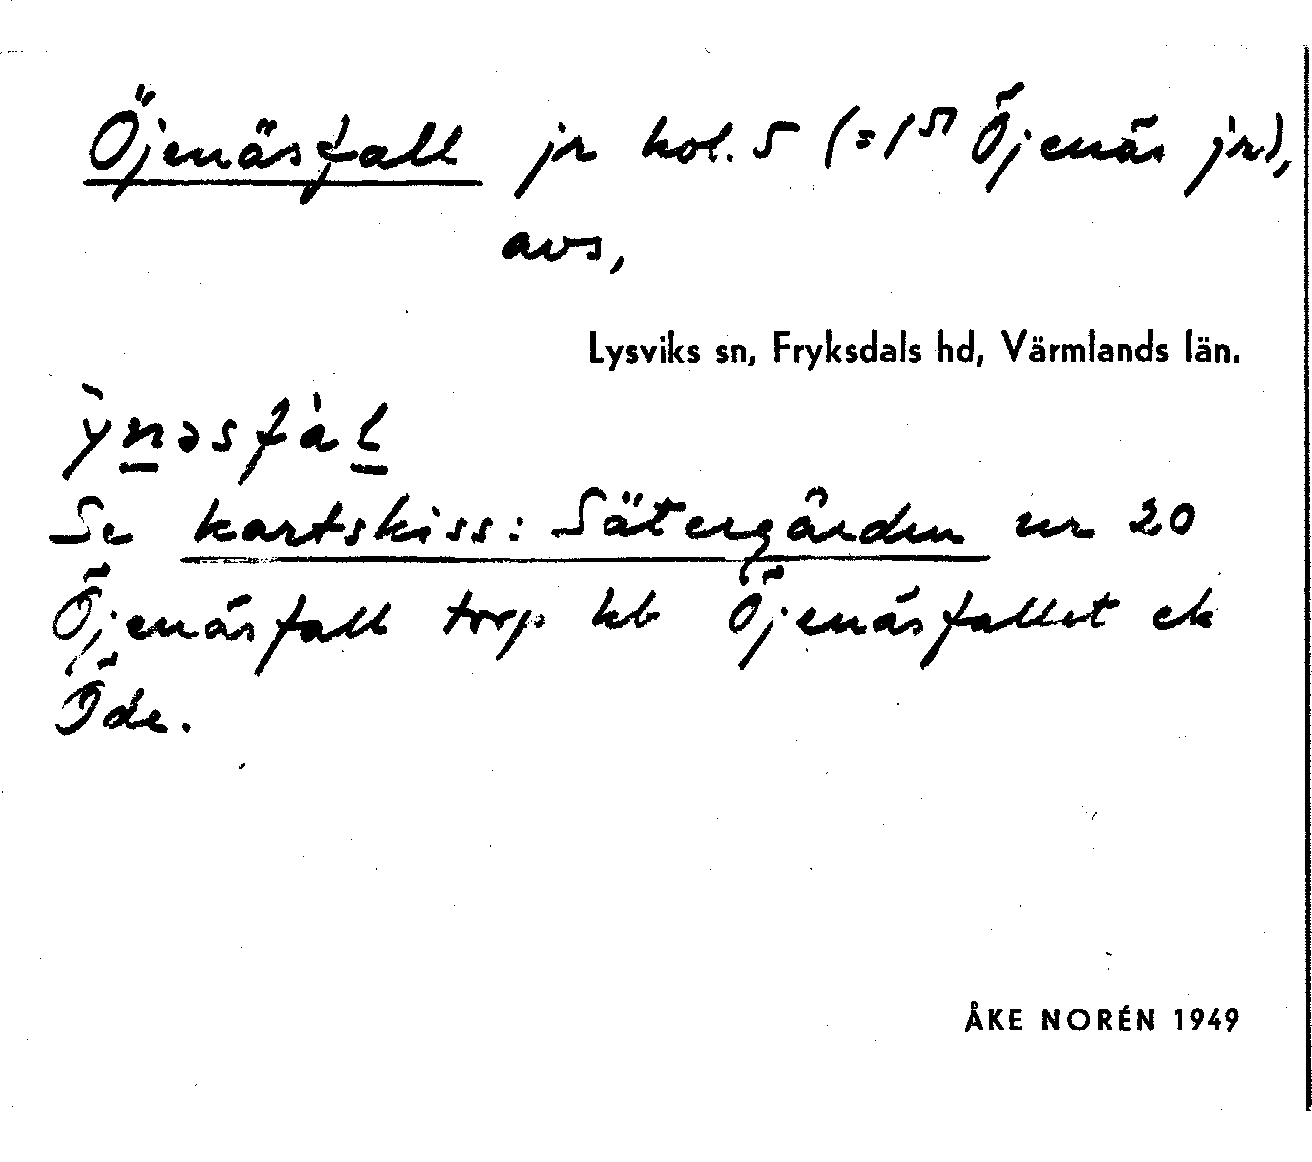 Öjenäsfall jr kol. 5 (= 1⁵⁷ Öjenäs jr),
avs,
Lysviks sn, Fryksdals hd, Värmlands län.
ỳnəsfàl
Se kartskiss: Sätergården nr 20
Öjenäsfall torp kb Öjenäsfallet ek
Öde.
ÅKE NORÉN 1949